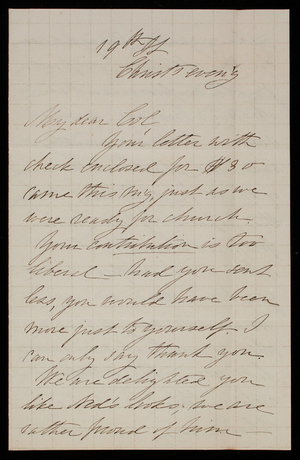 19th St
Christ's eveng
My dear Col
Your letter with
check enclosed for $30
came this mg, just as we
were ready for church.
Your contribution is too
liberal – had you sent
less, you would have been
more just to yourself I
can only say thank you
We are delighted you
like Ned's looks, we are
rather proud of him –